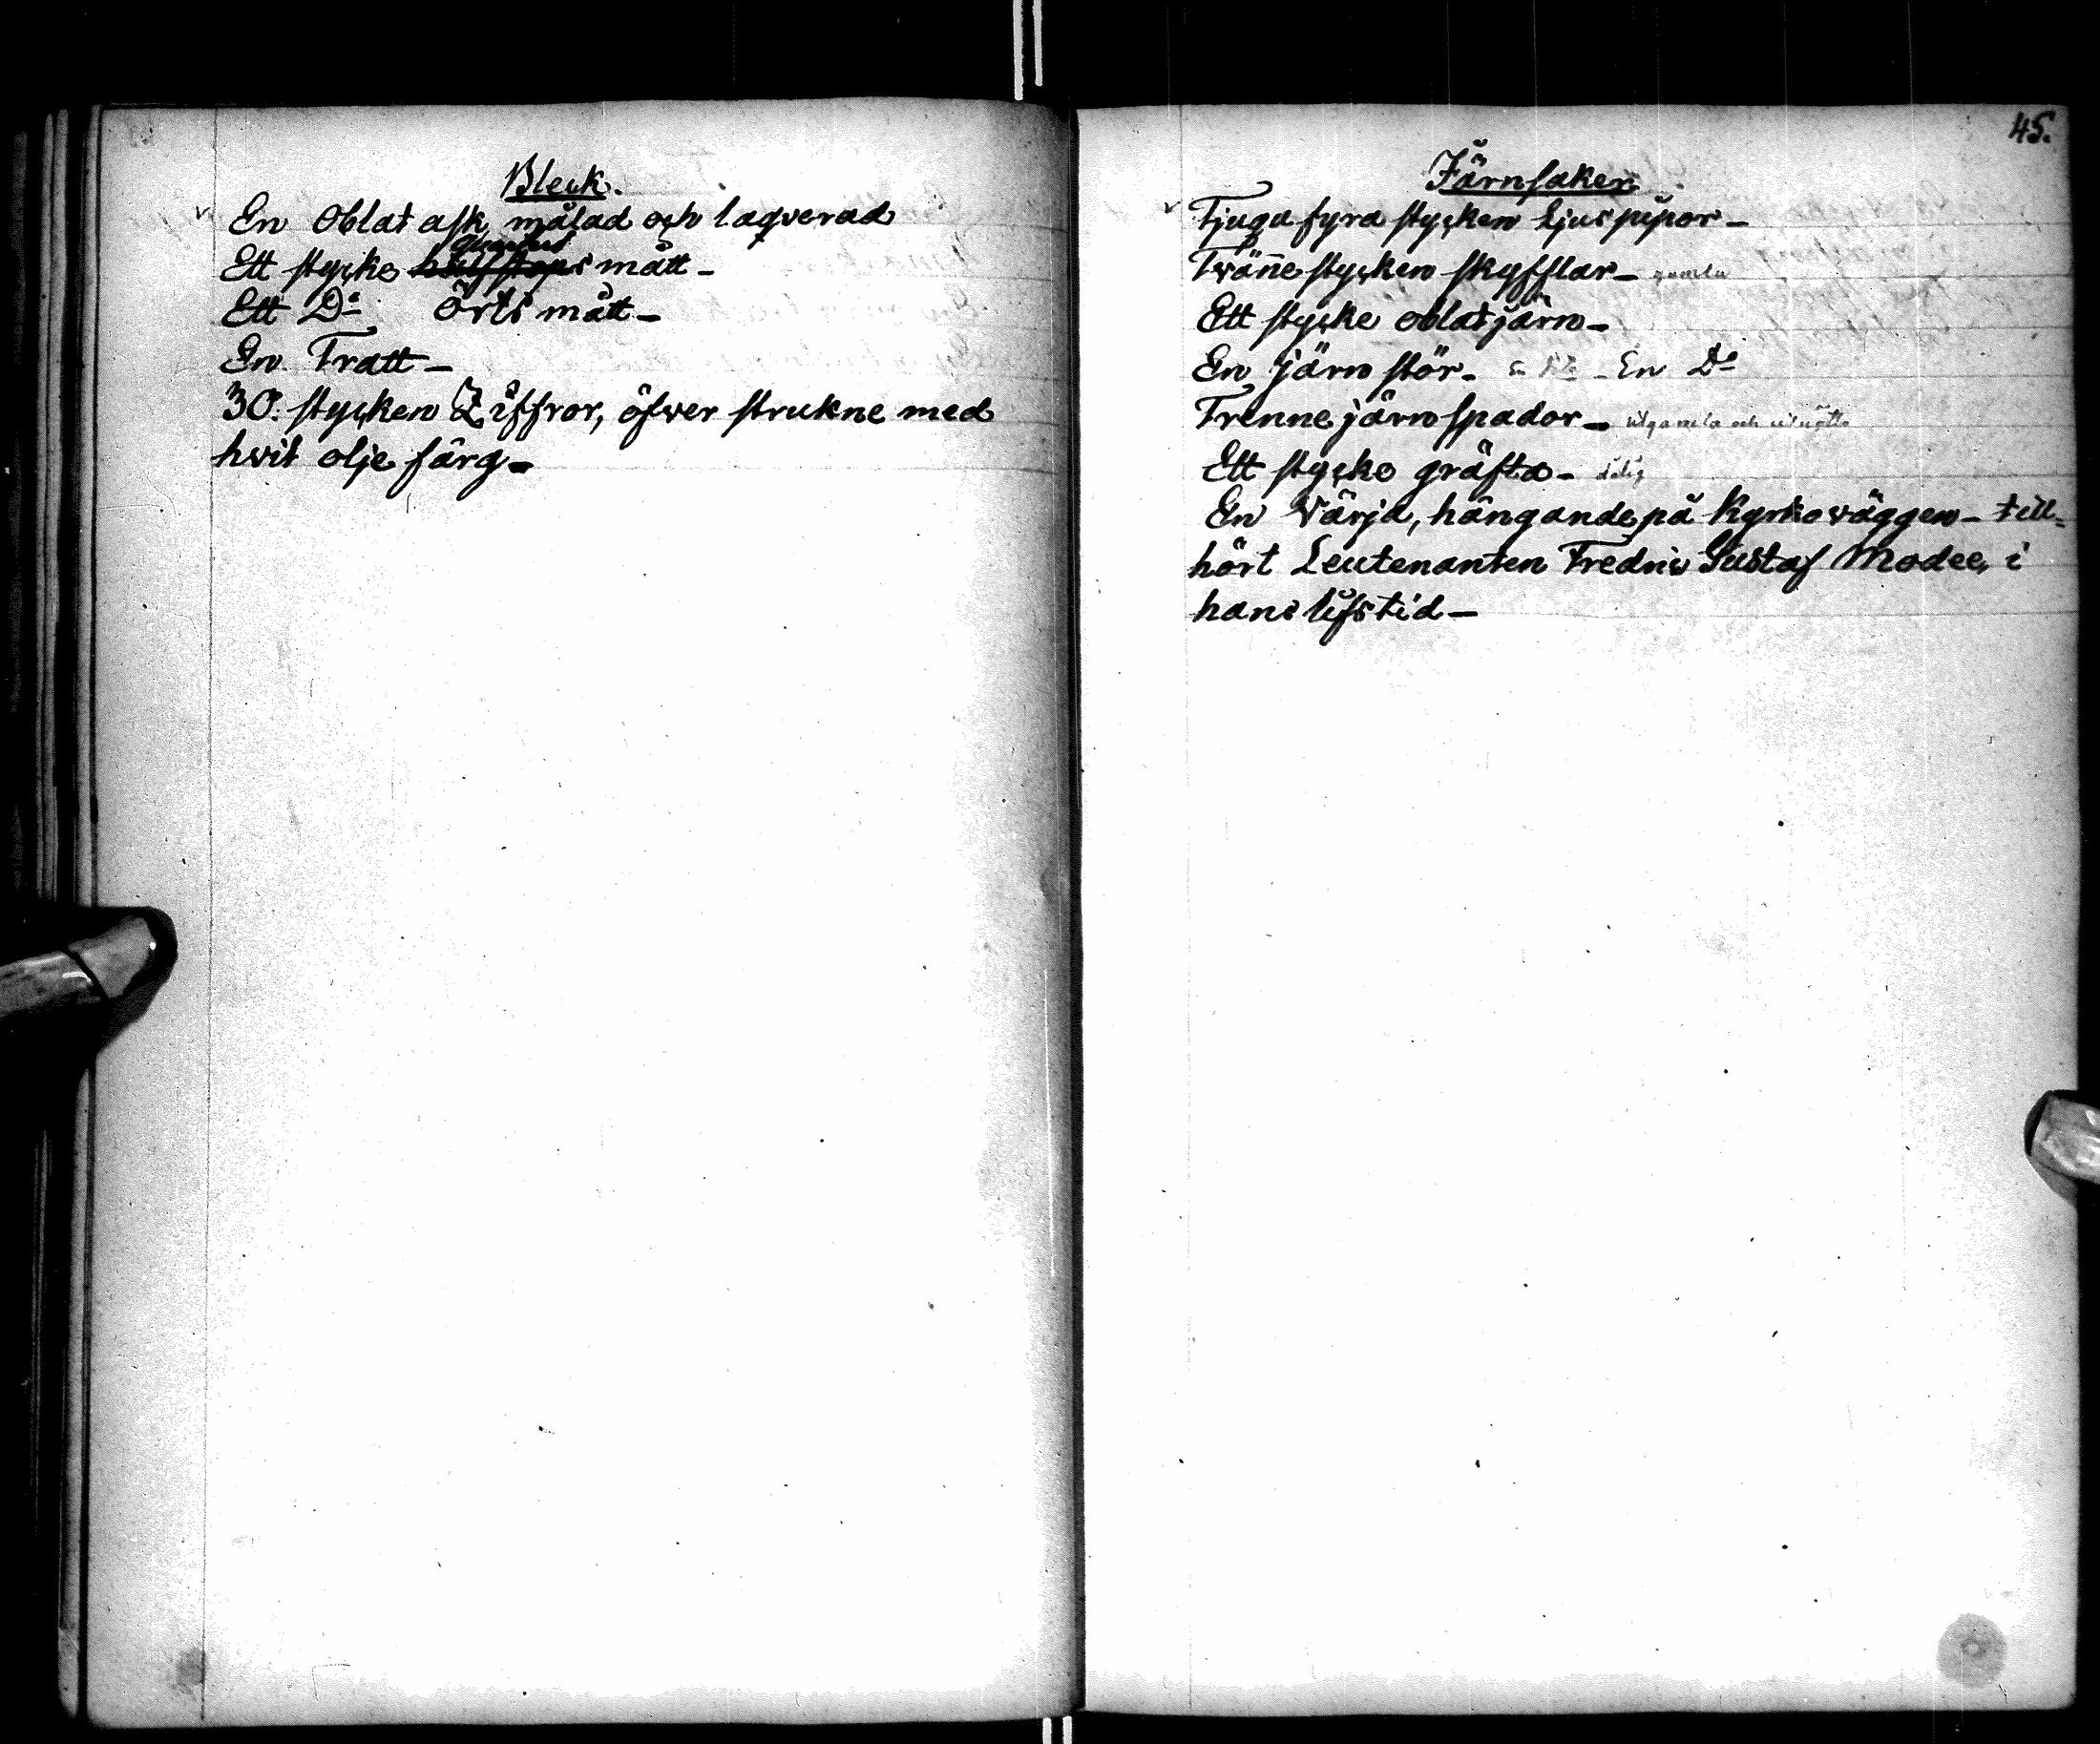 Bleck.
En Oblat ask, målad och laqverad
quarters
Ett stycke halfstops mått -
Ett Do örts mått -
En Tratt -
30. stycken Ziffror, öfwer strukne med
hvit olje färg -
45.
Järnsaker
Tjuga fyra stycken ljuspipor -
Twänne stycken skyfflar - gamla
Ett stycke oblatjärn -
En järn stör. - En Do
Trenne järn spador - utgamla och utnötta
Ett stycke gräfta - dålig
En Värja, hängande på Kyrkowäggen - till=
hört Leutenanten Fredric Gustaf Modee, i
hans lifstid -